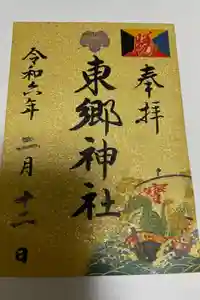 勝
奉拝
東郷神社
令和六年二月十二日